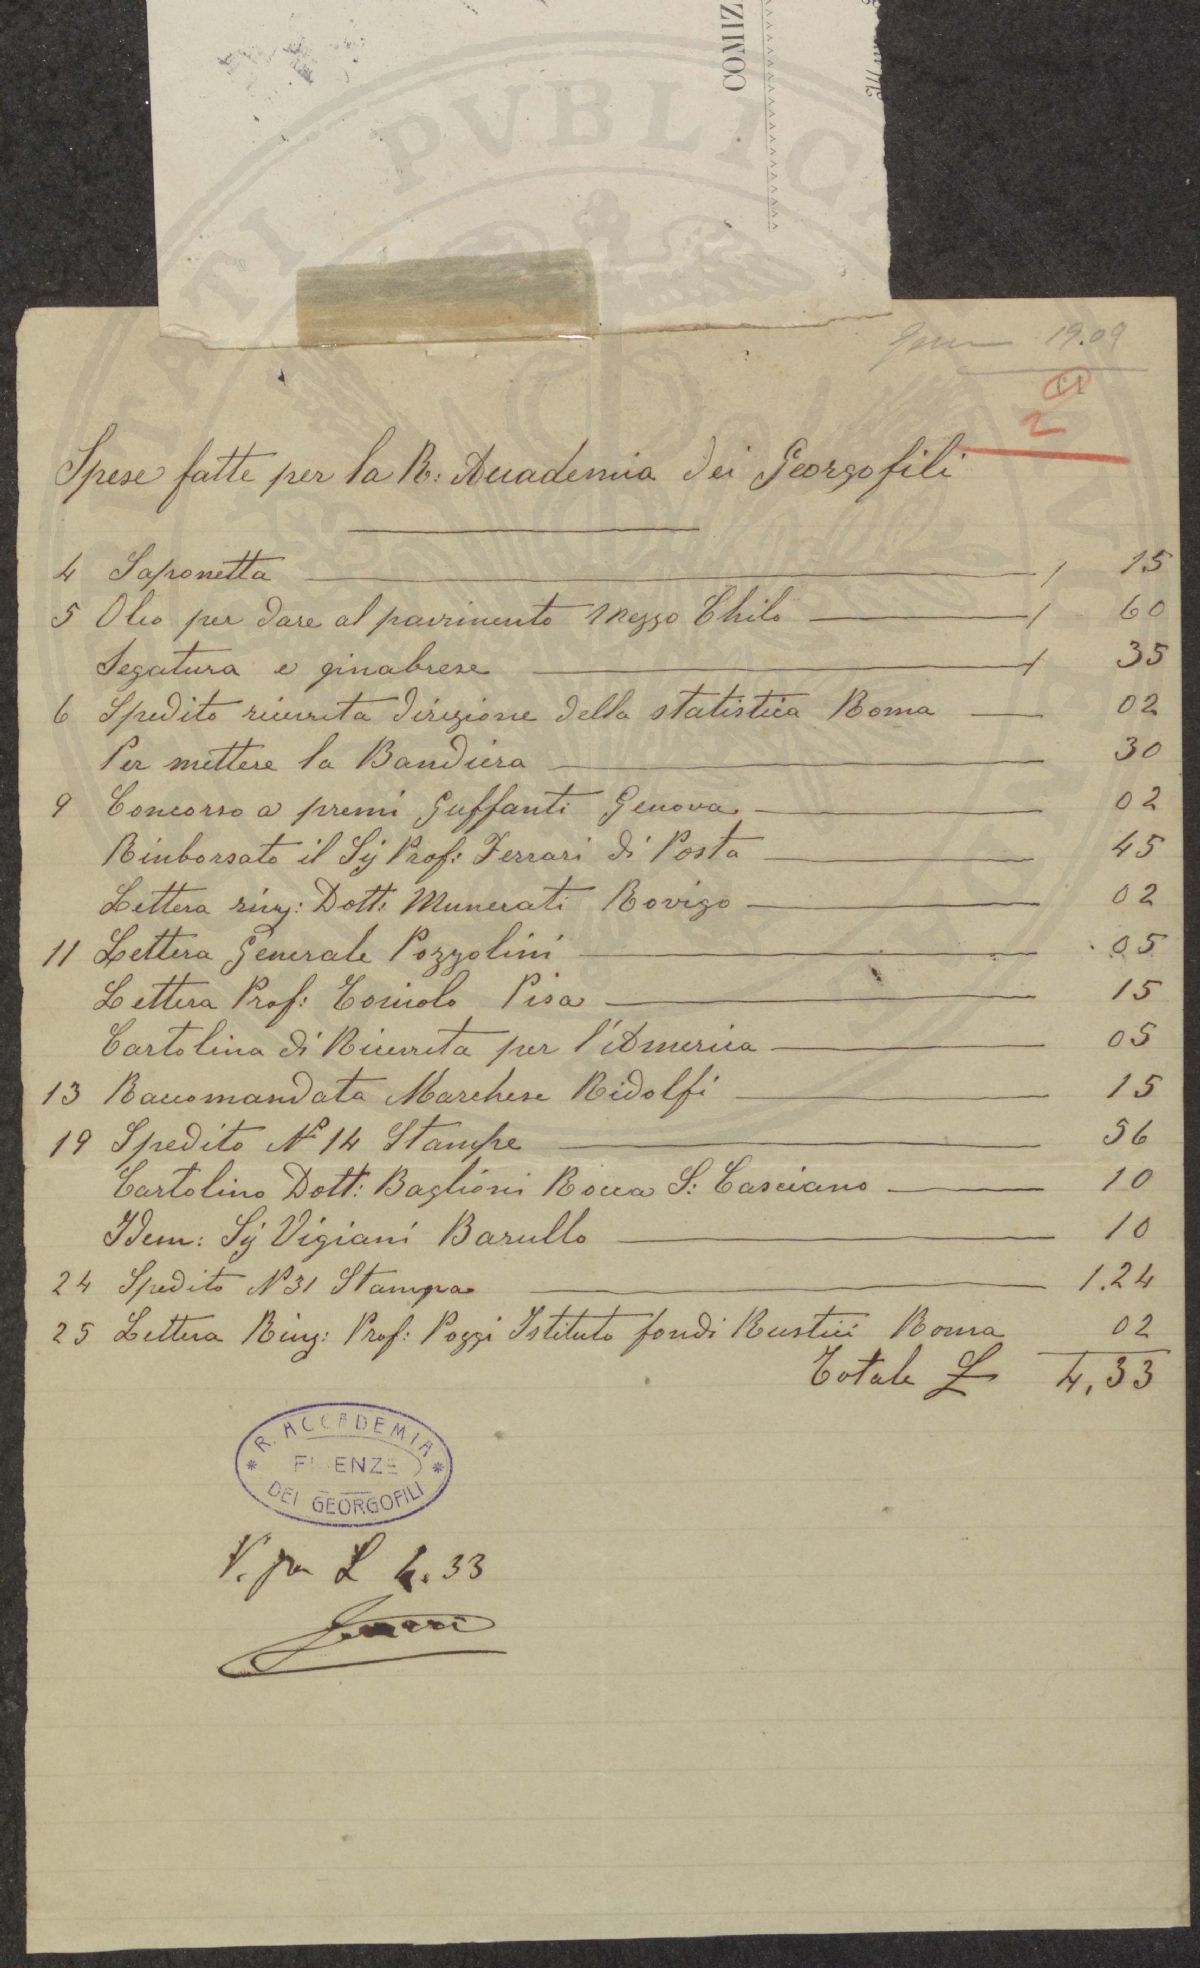 COMIZ
PVBLICA
1909
Spese fatte per la R: Accademia dei Georgofili
4 Saponetta 15
5 Olio per dare al pavrimento Mezzo Chilo 60
Segatura e ginabrese 35
6 Spedito ricevuta direzione della statistica Roma 02
Per mettere la Bandiera 30
9 Concorso a premi Guffanti Genova 02
Rinborsato il Sig Prof: Ferrari di Posta 45
Lettera ring: Dott: Munerati Rovigo 02
11 Lettera Generale Pozzolini 05
Lettera Prof: Toniolo Pisa 15
Cartolina di Ricevuta per l'America 05
13 Raccomandata Marchese Ridolfi 15
19 Spedito N° 14 Stampe 56
Cartolina Dott: Baglioni Rocca S: Casciano 10
Idem: Sig Vigiani Barullo 10
24 Spedito N° 31 Stampa 1.24
25 Lettera Ring: Prof: Poggi Istituto fondi Rustici Roma 02
Totale £ 4,33
R. ACCADEMIA
FIRENZE
DEI GEORGOFILI
V. per L 4.33